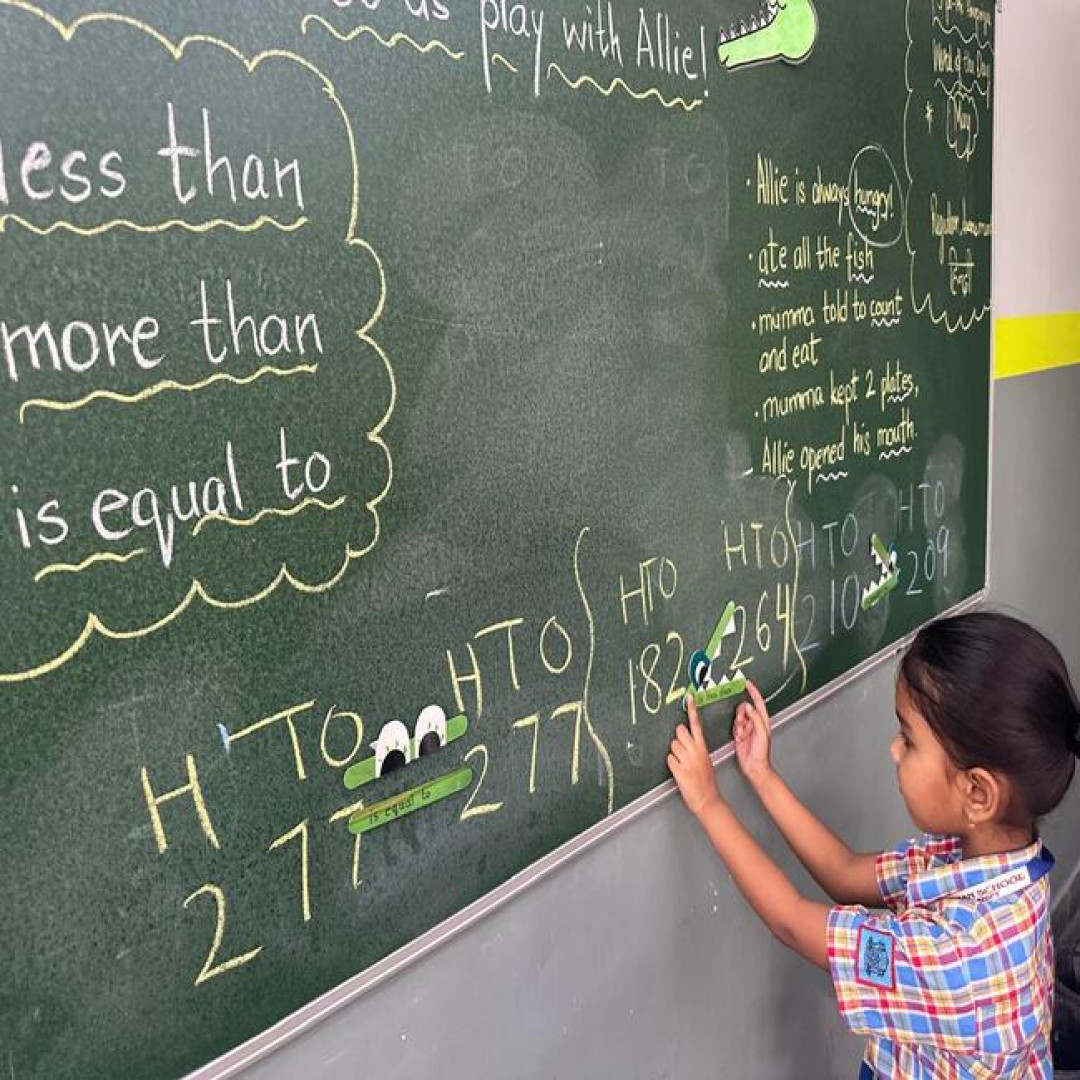 as play with Allie!
less than
more than
is equal to
TO
TO
• Allie is always hungry!
• ate all the fish
• mumma told to count
and eat
• mumma kept 2 plates,
- Allie opened his mouth.
Word of the Day
* May
हिन्दी
HTO HTO
277 is equal to 277
HTO HTO
182 264
HTO HTO
210 209
SCHOOL